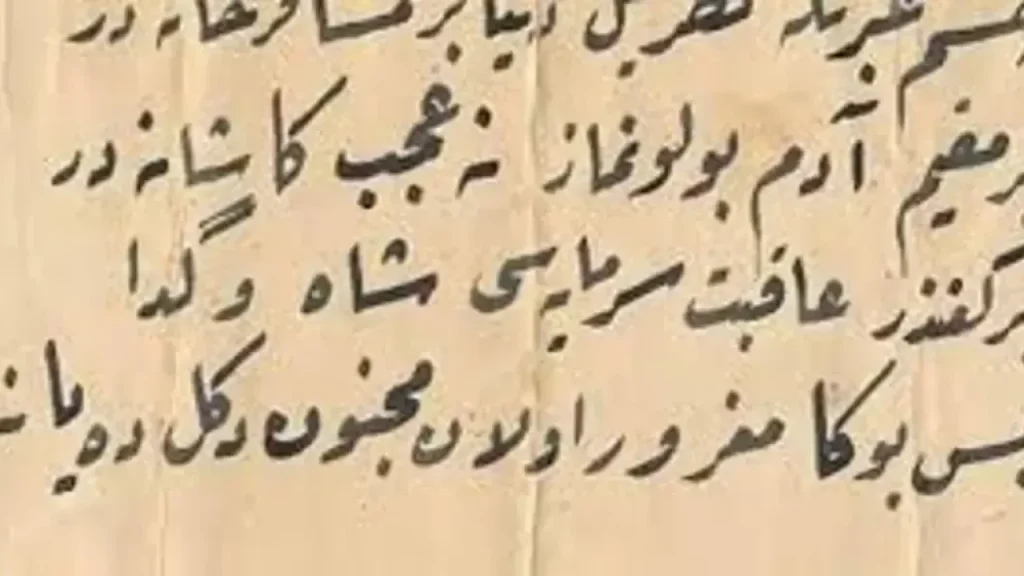 چشم عبرتله نظر قیل دنیا بر مسافرخانه در
بر مقیم آدم بولونماز نه عجب کاشانه در
بر کفندر عاقبت سرمایه سی شاه و گدا
پس بوکا مغرور اولان مجنون دکل ده یا نه